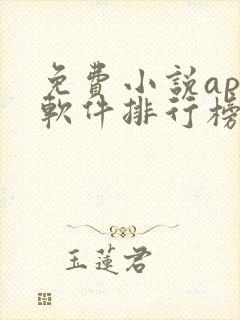 免費小説ap
軟件排行榜
玉蓮君